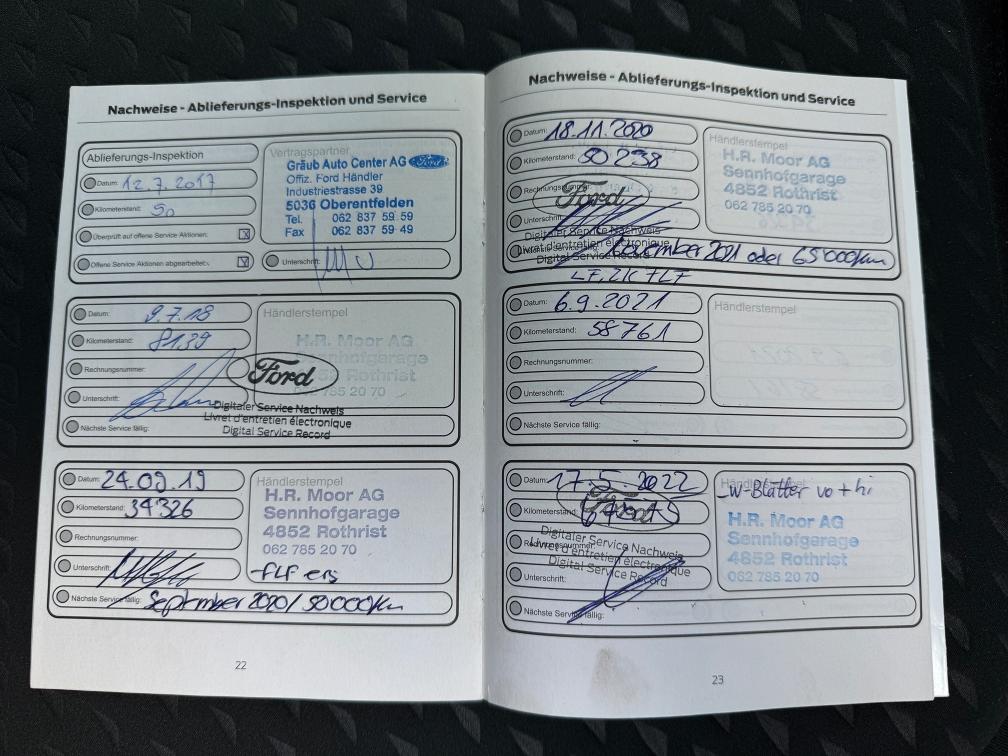 Nachweise - Ablieferungs-Inspektion und Service
Ablieferungs-Inspektion
Datum: 12.7.2017
Kilometerstand: 50
Überprüft auf offene Service Aktionen: X
Offene Service Aktionen abgearbeitet: X
Vertragspartner
Gräub Auto Center AG Ford
Offiz. Ford Händler
Industriestrasse 39
5036 Oberentfelden
Tel. 062 837 59 59
Fax 062 837 59 49
Unterschrift:
Datum: 9.7.18
Kilometerstand: 8139
Rechnungsnummer:
Unterschrift:
Nächste Service fällig:
Händlerstempel
H.R. Moor AG
Sennhofgarage
4852 Rothrist
062 785 20 70
Ford
Digitaler Service Nachweis
Livret d'entretien électronique
Digital Service Record
Datum: 24.09.19
Kilometerstand: 34'326
Rechnungsnummer:
Unterschrift:
Nächste Service fällig: September 2020/50'000km
Händlerstempel
H.R. Moor AG
Sennhofgarage
4852 Rothrist
062 785 20 70
-FLF ers
22
Nachweise - Ablieferungs-Inspektion und Service
Datum: 18.11.2020
Kilometerstand: 50238
Rechnungsnummer:
Unterschrift:
Ford
Digitaler Service Nachweis
Livret d'entretien électronique
Digital Service Record
November 2021 oder 65'000km
Händlerstempel
H.R. Moor AG
Sennhofgarage
4852 Rothrist
062 785 20 70
Datum: 6.9.2021
Kilometerstand: 58761
Rechnungsnummer:
Unterschrift:
Nächste Service fällig:
Händlerstempel
Datum: 17.5.2022
Kilometerstand:
Rechnungsnummer:
Unterschrift:
Nächste Service fällig:
Ford
Digitaler Service Nachweis
Livret d'entretien électronique
Digital Service Record
Händlerstempel
-W-Blätter vo + hi
H.R. Moor AG
Sennhofgarage
4852 Rothrist
062 785 20 70
23